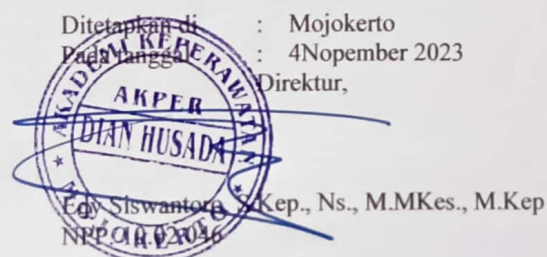 Ditetapkan di : Mojokerto
Pada tanggal : 4Nopember 2023
Direktur,
AKADEMI KEPERAWATAN
AKPER
DIAN HUSADA
MOJOKERTO
Edy Siswantoro, S.Kep., Ns., M.MKes., M.Kep
NPP. 10.02.046